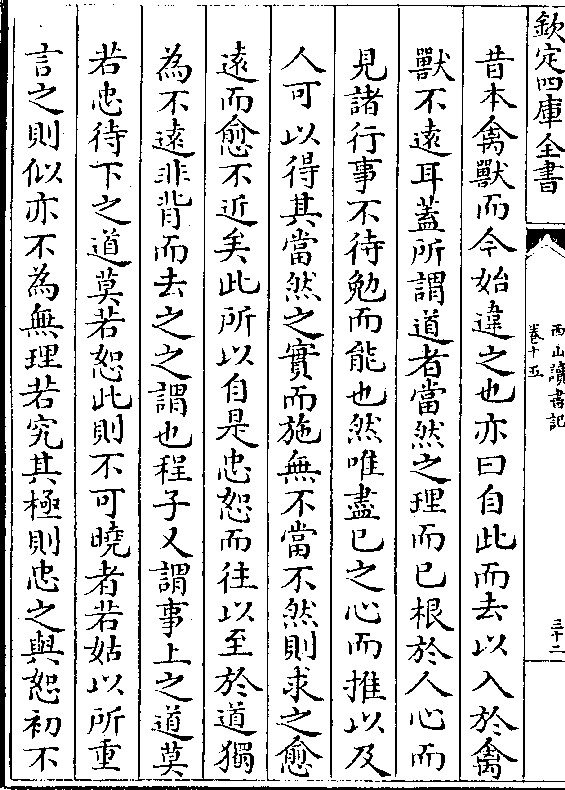 欽定四庫全書
西山讀書記
卷十五
三十二
昔本禽獸而今始違之也亦曰自此而去以入於禽
獸不遠耳蓋所謂道者當然之理而已根於人心而
見諸行事不待勉而能也然唯盡己之心而推以及
人可以得其當然之實而施無不當不然則求之愈
遠而愈不近矣此所以自是忠恕而往以至於道獨
為不遠非背而去之之謂也程子又謂事上之道莫
若忠待下之道莫若恕此則不可曉者若姑以所重
言之則似亦不為無理若究其極則忠之與恕初不